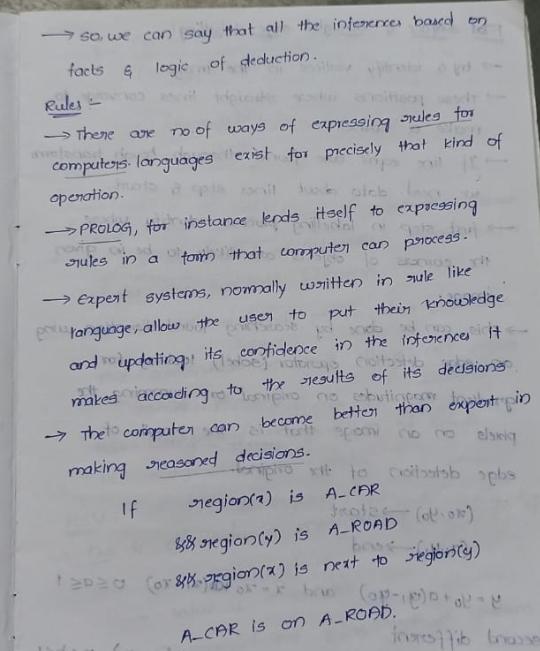 → so, we can say that all the inferences based on
facts & logic of deduction.
Rules :-
→ There are no of ways of expressing rules for
computers. languages exist for precisely that kind of
operation.
→ PROLOG, for instance lends itself to expressing
rules in a form that computer can process.
→ Expert systems, normally written in rule like
language, allow the user to put their knowledge
and updating its confidence in the inferences it
makes according to the results of its decisions
→ The computer can become better than expert in
making reasoned decisions.
If region(x) is A_CAR
&& region(y) is A_ROAD
&& region(x) is next to region(y)
A_CAR is on A_ROAD.